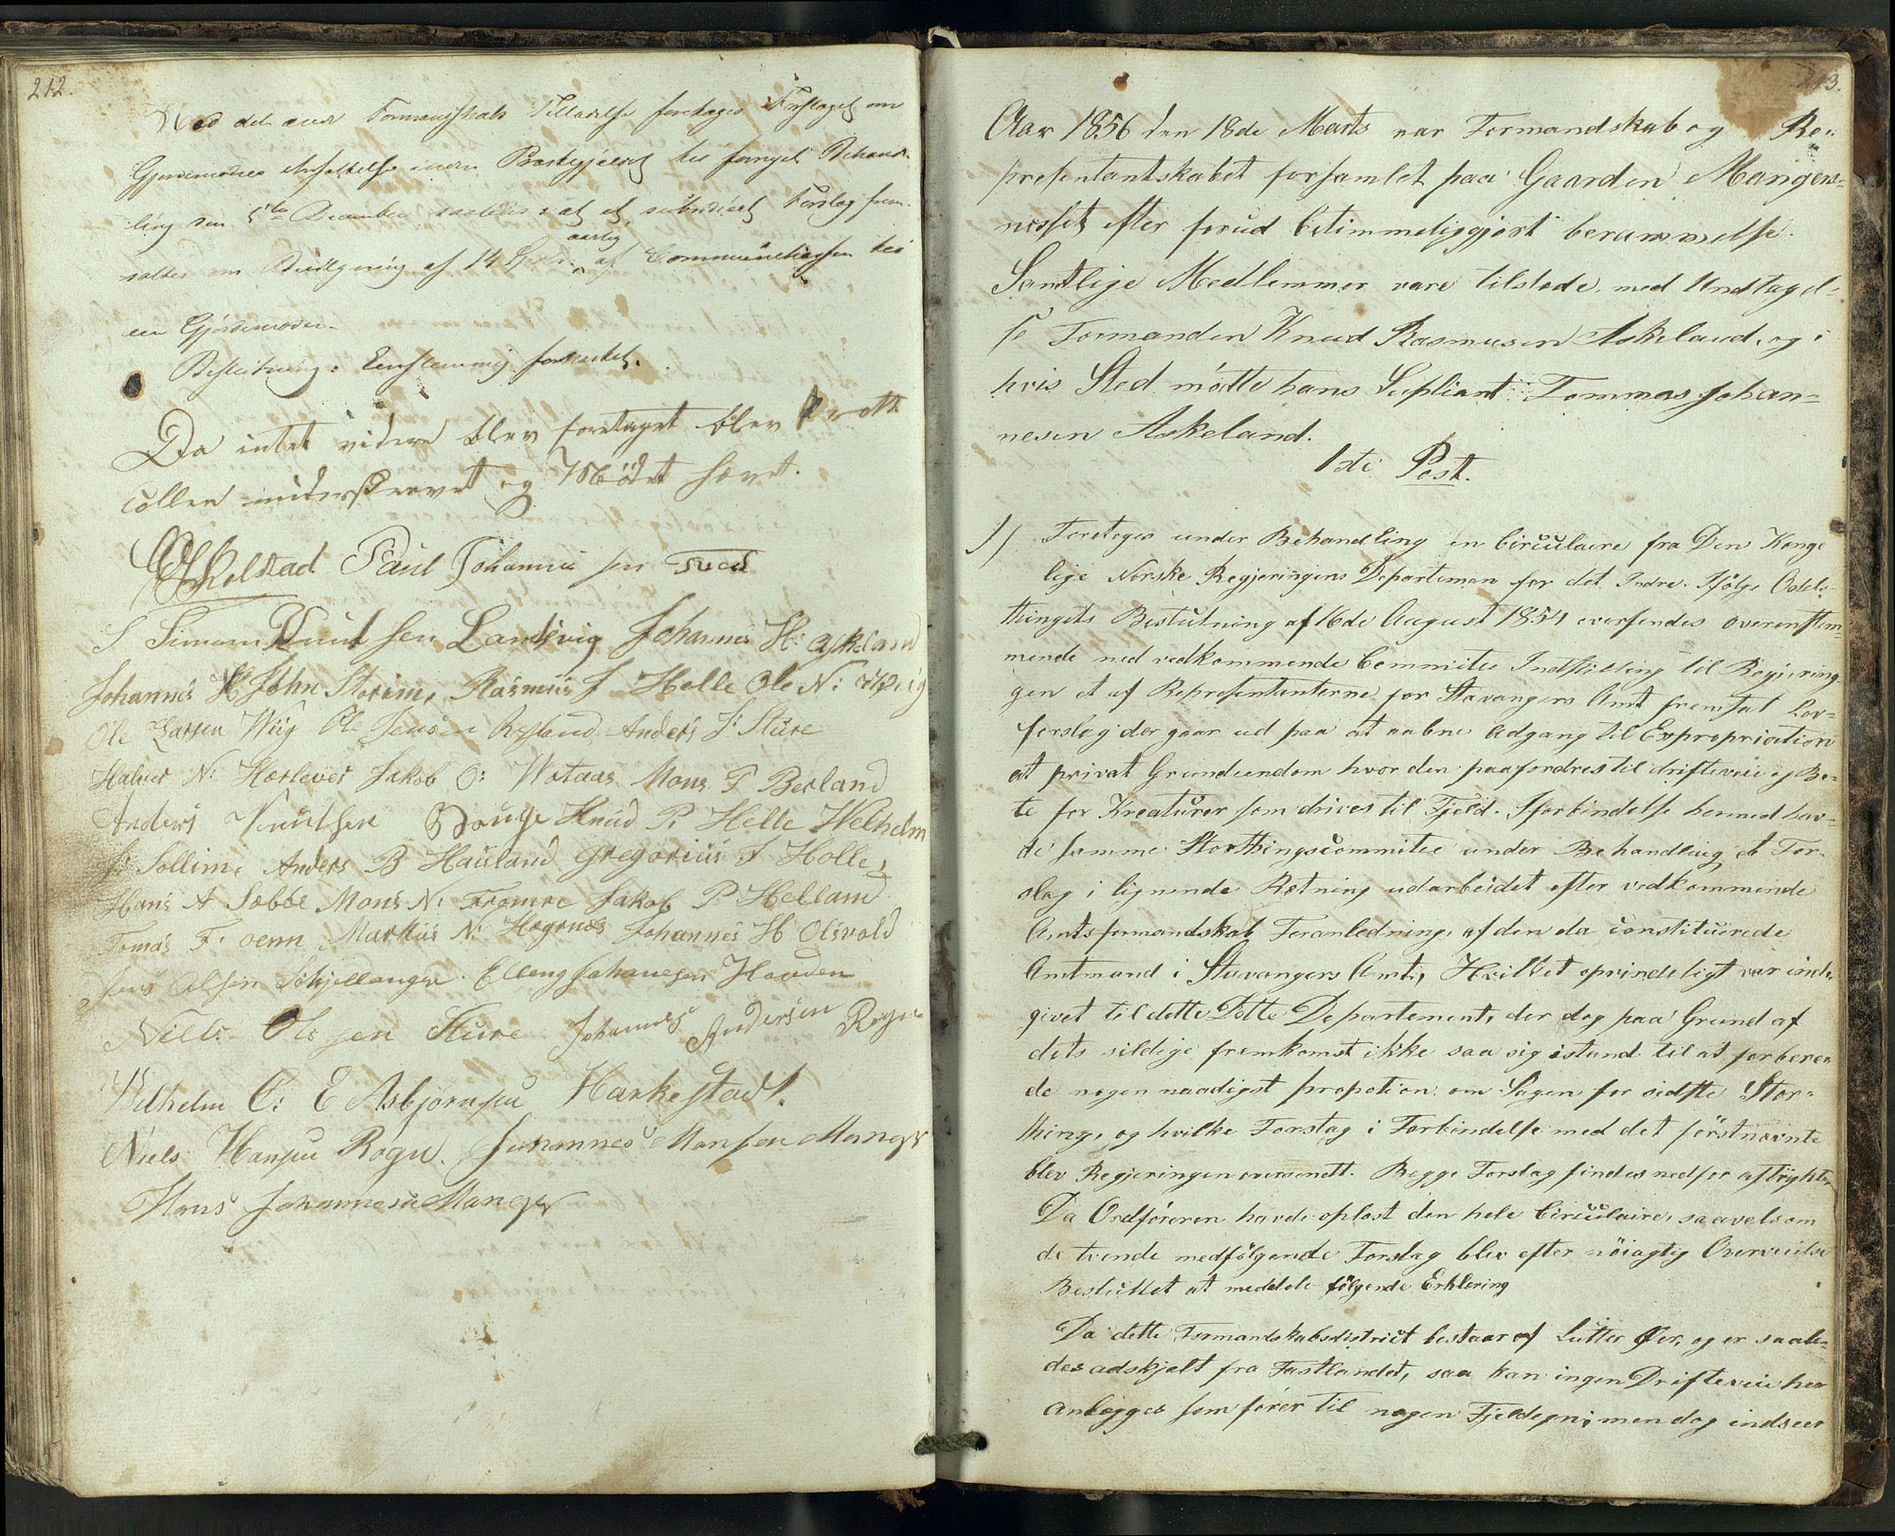 212.
Med det ærede Formandskabs Tilladelse foretages Forslaget om
Gjordemodres Ansættelse
ling den 5te December saaledes: at et subsidiært Forslag frem-
sattes om Bevilgning af 14 aarlig af Communekassen til
een Gjordemoder.
Beslutning: Eenstemmig forkastet.
Da intet videre blev foretaget blev Prott
collen underskrevet og Mödet hævet.
Paul Johannes sen Tved
S Simon Knut sen Landsvig Johannes H: Askeland
Johannes H John Storim, Rasmus J Helle Ole N:
Ole Larsen Wiig Ole Jensen Rysland Anders J: Sture
Halver N: Hærlever Jakob O: Wataas Mons T Berland
Anders Knutsen Houge Knud R Helle Welhelm
J: Sollim, Anders B Hauland Gregorius J Holle,
Hans A Sæbbe Mons N: Fromre Jakob P Helland
Tomas T: oenn Markus N: Hægrnes Johannes H Olsvold
Jens Olsen Schjellanger Elleng Johanesen Hauden
Nills Ols sen Sture Johannes Andersen Rogne
Wilhelm C: E Asbjørnsen Harkestad.
Niels Hansen Rogn. Johannes Monsen Manger
Hans Johannesen Manger
213.
Aar 1856 den 18de Marts var Formandskab og Re-
presentantskabet forsamlet paa Gaarden Mangers-
nesset efter forud betimmeliggjort berammelse.
Samtlige Medlemmer vare tilstede, med Undtagel-
se Formanden Knud Rasmusen Askeland, og i
hvis Sted mötte hans Supliant Tommas Johan-
nesen Askeland.
1ste Post.
1) Foretoges under Behandling en Circulaire fra Den Konge
lige Norske Regjerings Departemen for det Indre. Ifölge Odels-
thingets Beslutning af 16de August 1854 oversendes overenstem-
mende med vedkommende Committes Indstilling til Regjerin-
gen et af Representanterne for Stavangers Amt fremsat Lov-
forslag der gaar ud paa at aabne Adgang til Expropriation
at privat Grundeiendom hvor den paafordres til drifteveie og Be-
te for Kreaturer som drives til Fjeld. I forbindelse hermed hav-
de samme Storthingscommitee under Behandling et For-
slag i lignende Retning udarbeidet efter vedkommende
Amtsformandskab Foranledning, af den da constituerede
Amtmand i Stavangers Amt, Hvilket oprindeligt var ind-
givet til dette Dette Departement, der dog paa Grund af
dets sildige fremkomst ikke saa sig istand til at forbere-
de nogen naadigst propotion om Sagen for sidste Stor-
thing, og hvilke Forslag i Forbindelse med det förstnævnte
blev Regjeringen oversendt. Begge Forslag findes nedfor aftrykte.
Da Ordföreren havde oplæst den hele Circulaire, saavelsom
de tvende medfölgende Forslag blev efter nöiagtig Overveielse
Besluttet at meddele fölgende Erklæring
Da dette Formandskabsdistrict bestaar af Lutter Øer, og er saale-
des adskjelt fra Fastlandet, saa kan ingen Drifteveie her
anlægges som förer til nogen Fjeldegn; men dog indseer